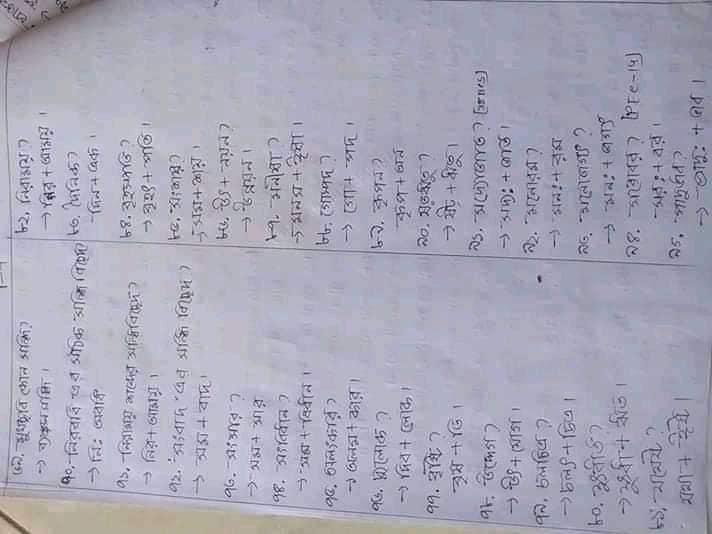 ৬৯. মুখচ্ছবি কোন সন্ধি?
→ ব্যঞ্জনসন্ধি।
৭০. নিরবধি এর সঠিক সন্ধি বিচ্ছেদ?
→ নি: অবধি
৭১. নিরাময় শব্দের সন্ধিবিচ্ছেদ?
→ নির+ আময়।
৭২. "সংবাদ" এর সন্ধি বিচ্ছেদ?
→ সম + বাদ।
৭৩. সংসার?
→ সম + সার
৭৪. সংবিধান?
→ সম + বিধান।
৭৫. অলংকার?
→ অলম + কার।
৭৬. দ্যুলোক?
→ দিব + লোক।
৭৭. বৃষ্টি?
বৃষ + তি।
৭৮. উদ্যোগ?
→ উৎ + যোগ।
৭৯. চলচ্চিত্র?
→ চলৎ + চিত্র।
৮০.
→
৮১.
যথা +
৮২. নিরাময়?
→ নির + আময়।
৮৩. দৈনিক?
দিন + এক।
৮৪. বৃহস্পতি?
→ বৃহৎ + পতি।
৮৫. সংশয়?
→ সম + শয়।
৮৬. উৎ + নয়ন?
→ উন্নয়ন।
৮৭. মনীষা?
→ মনস + ঈষা।
৮৮. গোষ্পদ?
→ গো + পদ।
৮৯. কৃপন?
কৃপ + অন
৯০. ষড়ঋতু?
→ ষট + ঋতু।
৯১. সদ্যোজাত?
→ সদ্য: + জাত।
৯২. মনোরম?
→ মন: + রম
৯৩. মনোজগৎ?
→ মন: + জগৎ
৯৪. সরোবর?
সর: + বর।
৯৫.
→ + ভাব।